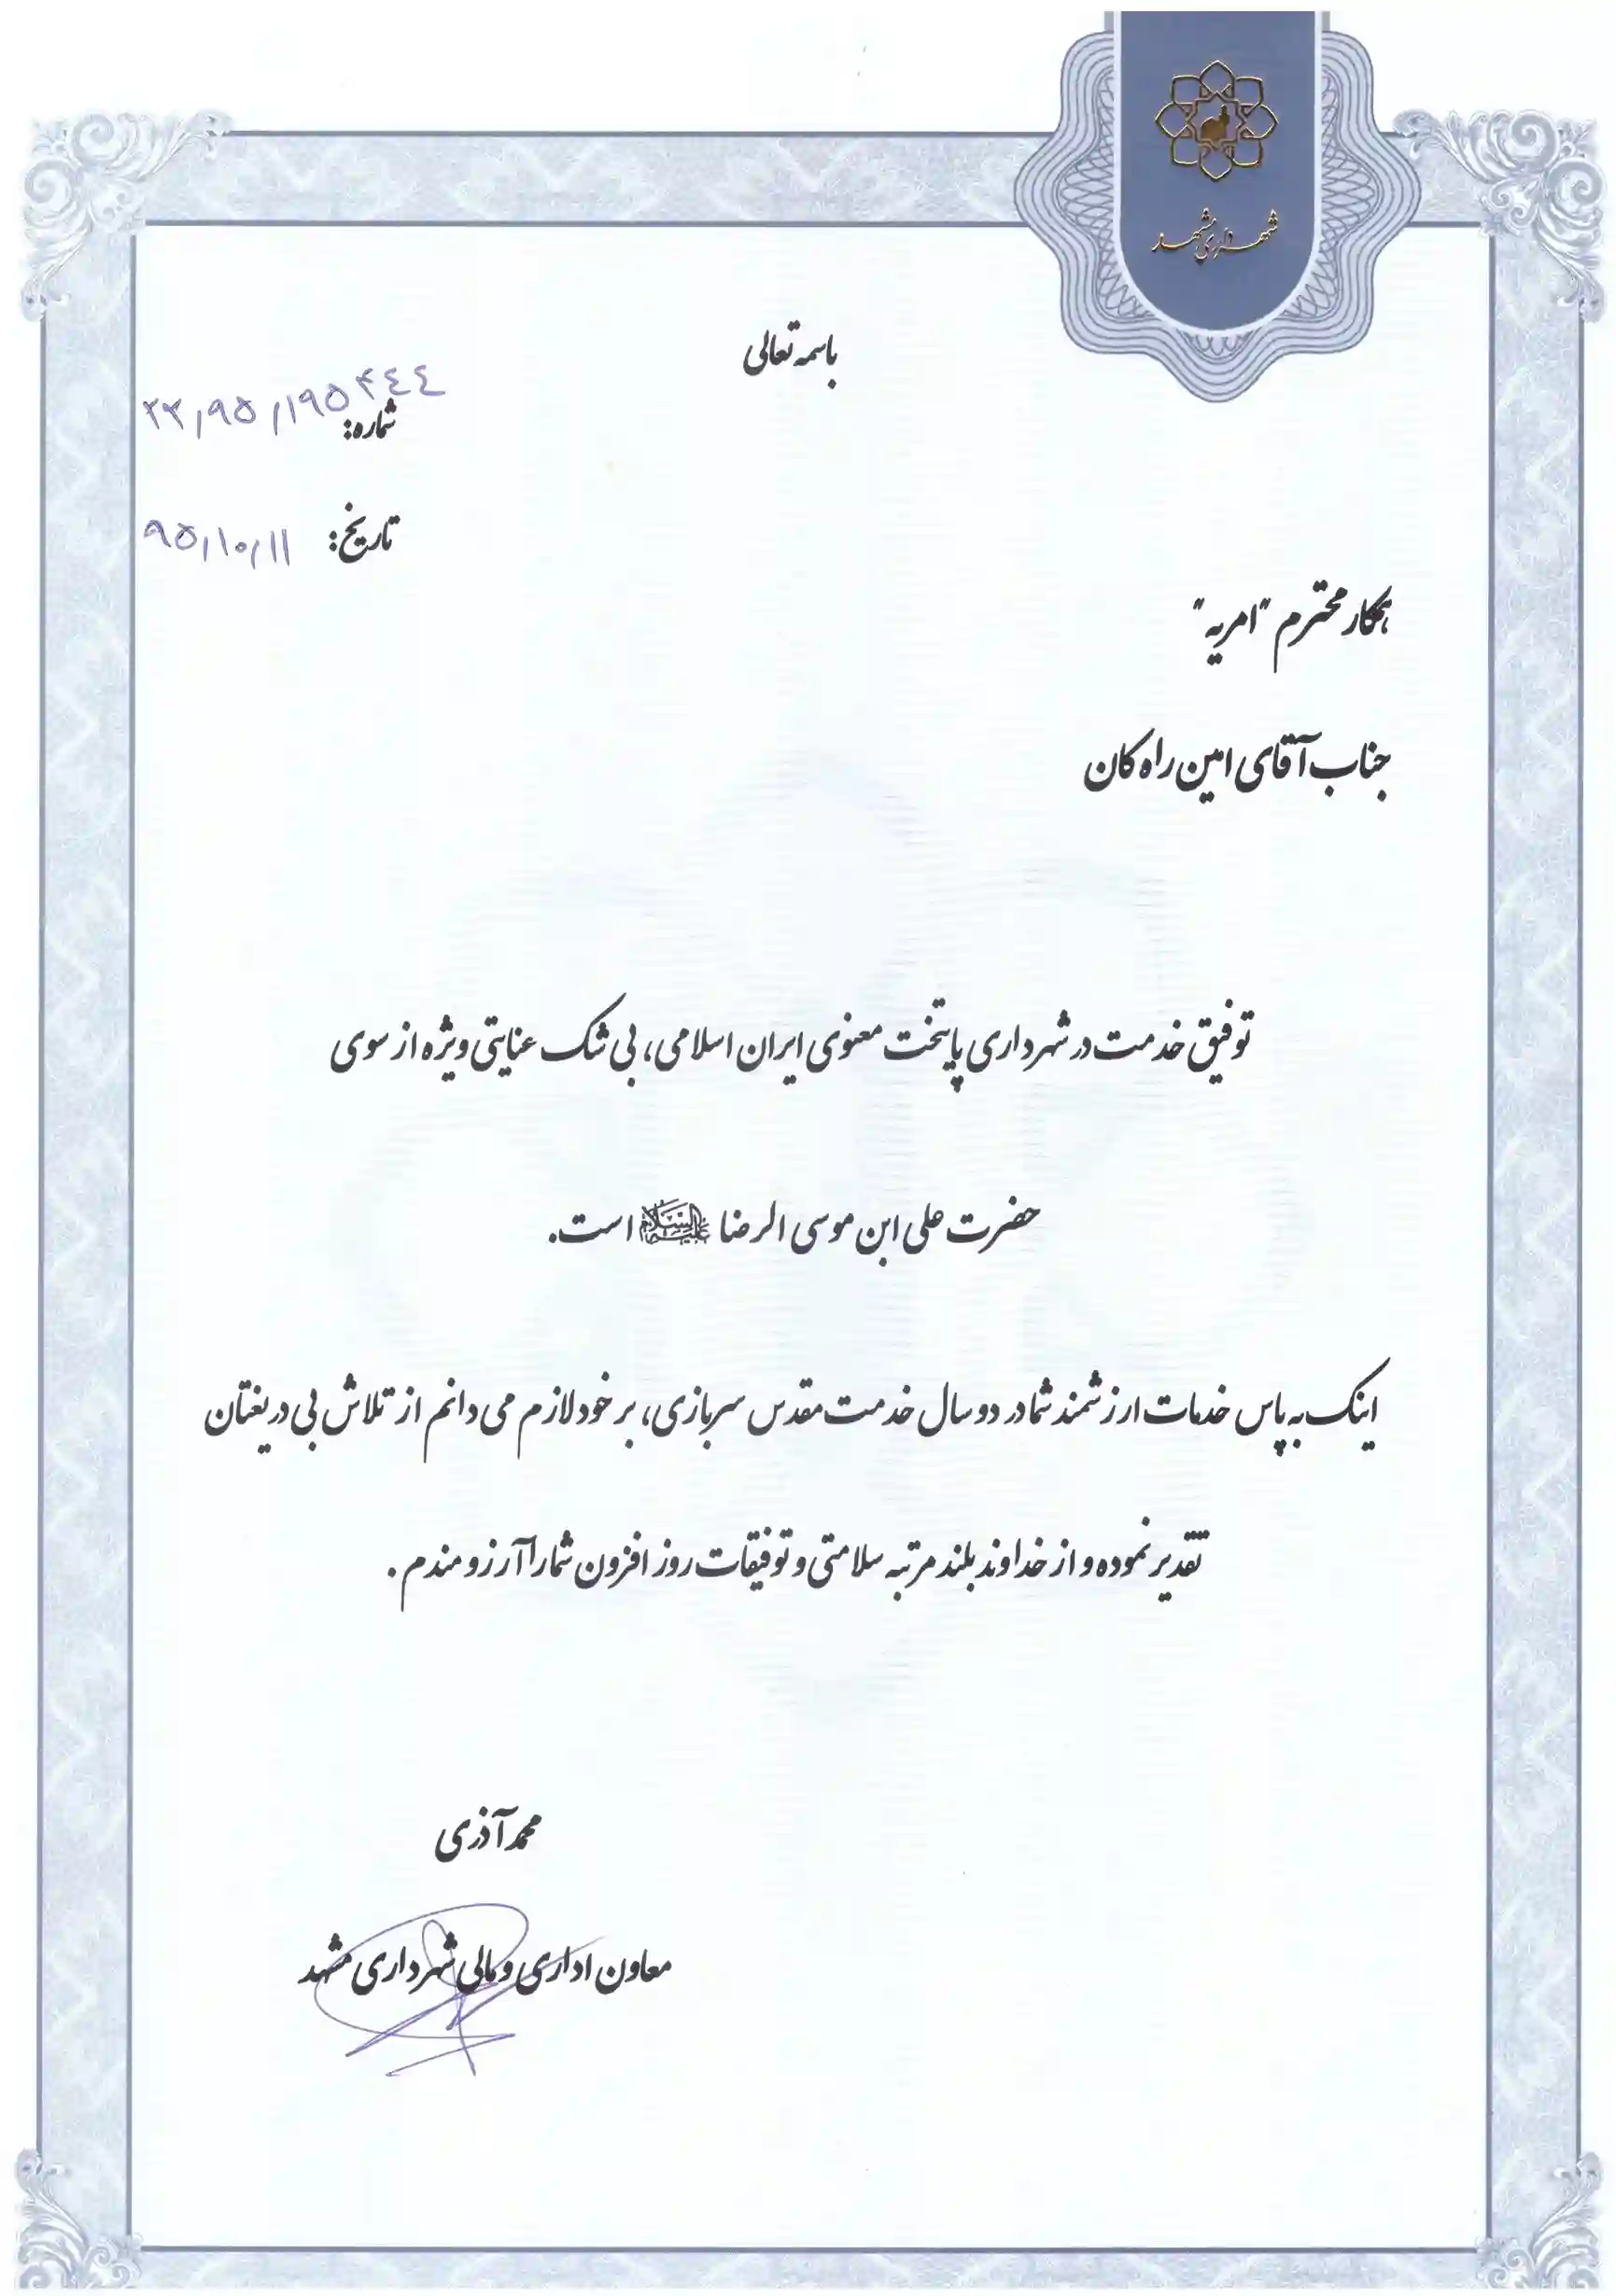 شهرداری مشهد
باسمه تعالی
شماره: ۲۲/۹۵/۱۹۵۴۴۴
تاریخ: ۹۵/۱۰/۱۱
همکار محترم "امریه"
جناب آقای امین راه کان
توفیق خدمت در شهرداری پایتخت معنوی ایران اسلامی، بی شک عنایتی ویژه از سوی
حضرت علی ابن موسی الرضا علیه السلام است.
اینک به پاس خدمات ارزشمند شما در دو سال خدمت مقدس سربازی، بر خود لازم می دانم از تلاش بی دریغتان
تقدیر نموده و از خداوند بلند مرتبه سلامتی و توفیقات روز افزون شما را آرزومندم.
محمد آذری
معاون اداری و مالی شهرداری مشهد